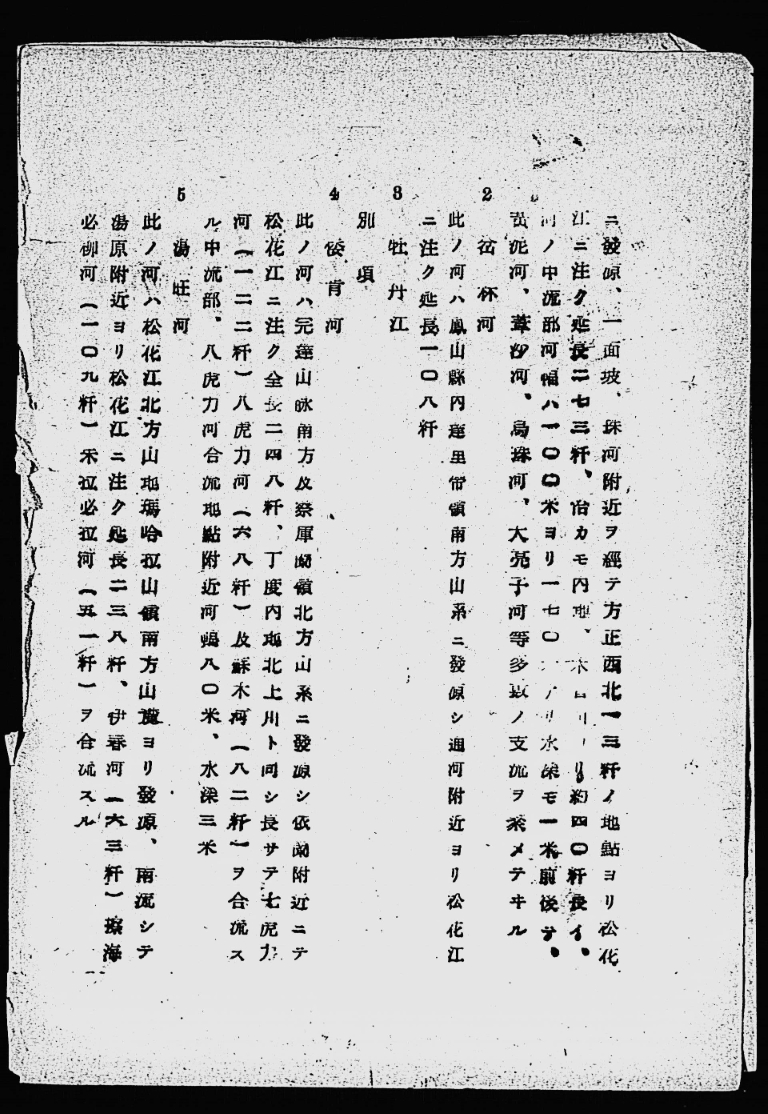 ニ發源、一面坡、珠河附近ヲ經テ方正西北一三粁ノ地點ヨリ松花
江ニ注ク延長二七三粁、恰カモ内地、木曾川ヨリ約四〇粁長イ、
河ノ中流部河幅ハ一〇〇米ヨリ一七〇 アリ水深モ一米前後デ、
黄泥河、葦沙河、烏珠河、大亮子河等多數ノ支流ヲ系メテヰル
2 岔林河
此ノ河ハ鳳山縣内蓮里帘嶺南方山系ニ發源シ通河附近ヨリ松花江
ニ注ク延長一〇八粁
3 牡丹江
別項
4 倭肯河
此ノ河ハ完達山脉南方及察庫蘭嶺北方山系ニ發源シ依蘭附近ニテ
松花江ニ注ク全長二四八粁、丁度内地北上川ト同シ長サテ七虎力
河(一二二粁)八虎力河(六八粁)及蘇木河(八二粁)ヲ合流ス
ル中流部、八虎力河合流地點附近河幅八〇米、水深三米
5 湯旺河
此ノ河ハ松花江北方山地瑪哈拉山嶺南方山麓ヨリ發源、南流シテ
湯原附近ヨリ松花江ニ注ク延長二三八粁、伊春河(六三粁)擦海
必柳河(一〇九粁)米拉必拉河(五一粁)ヲ合流スル